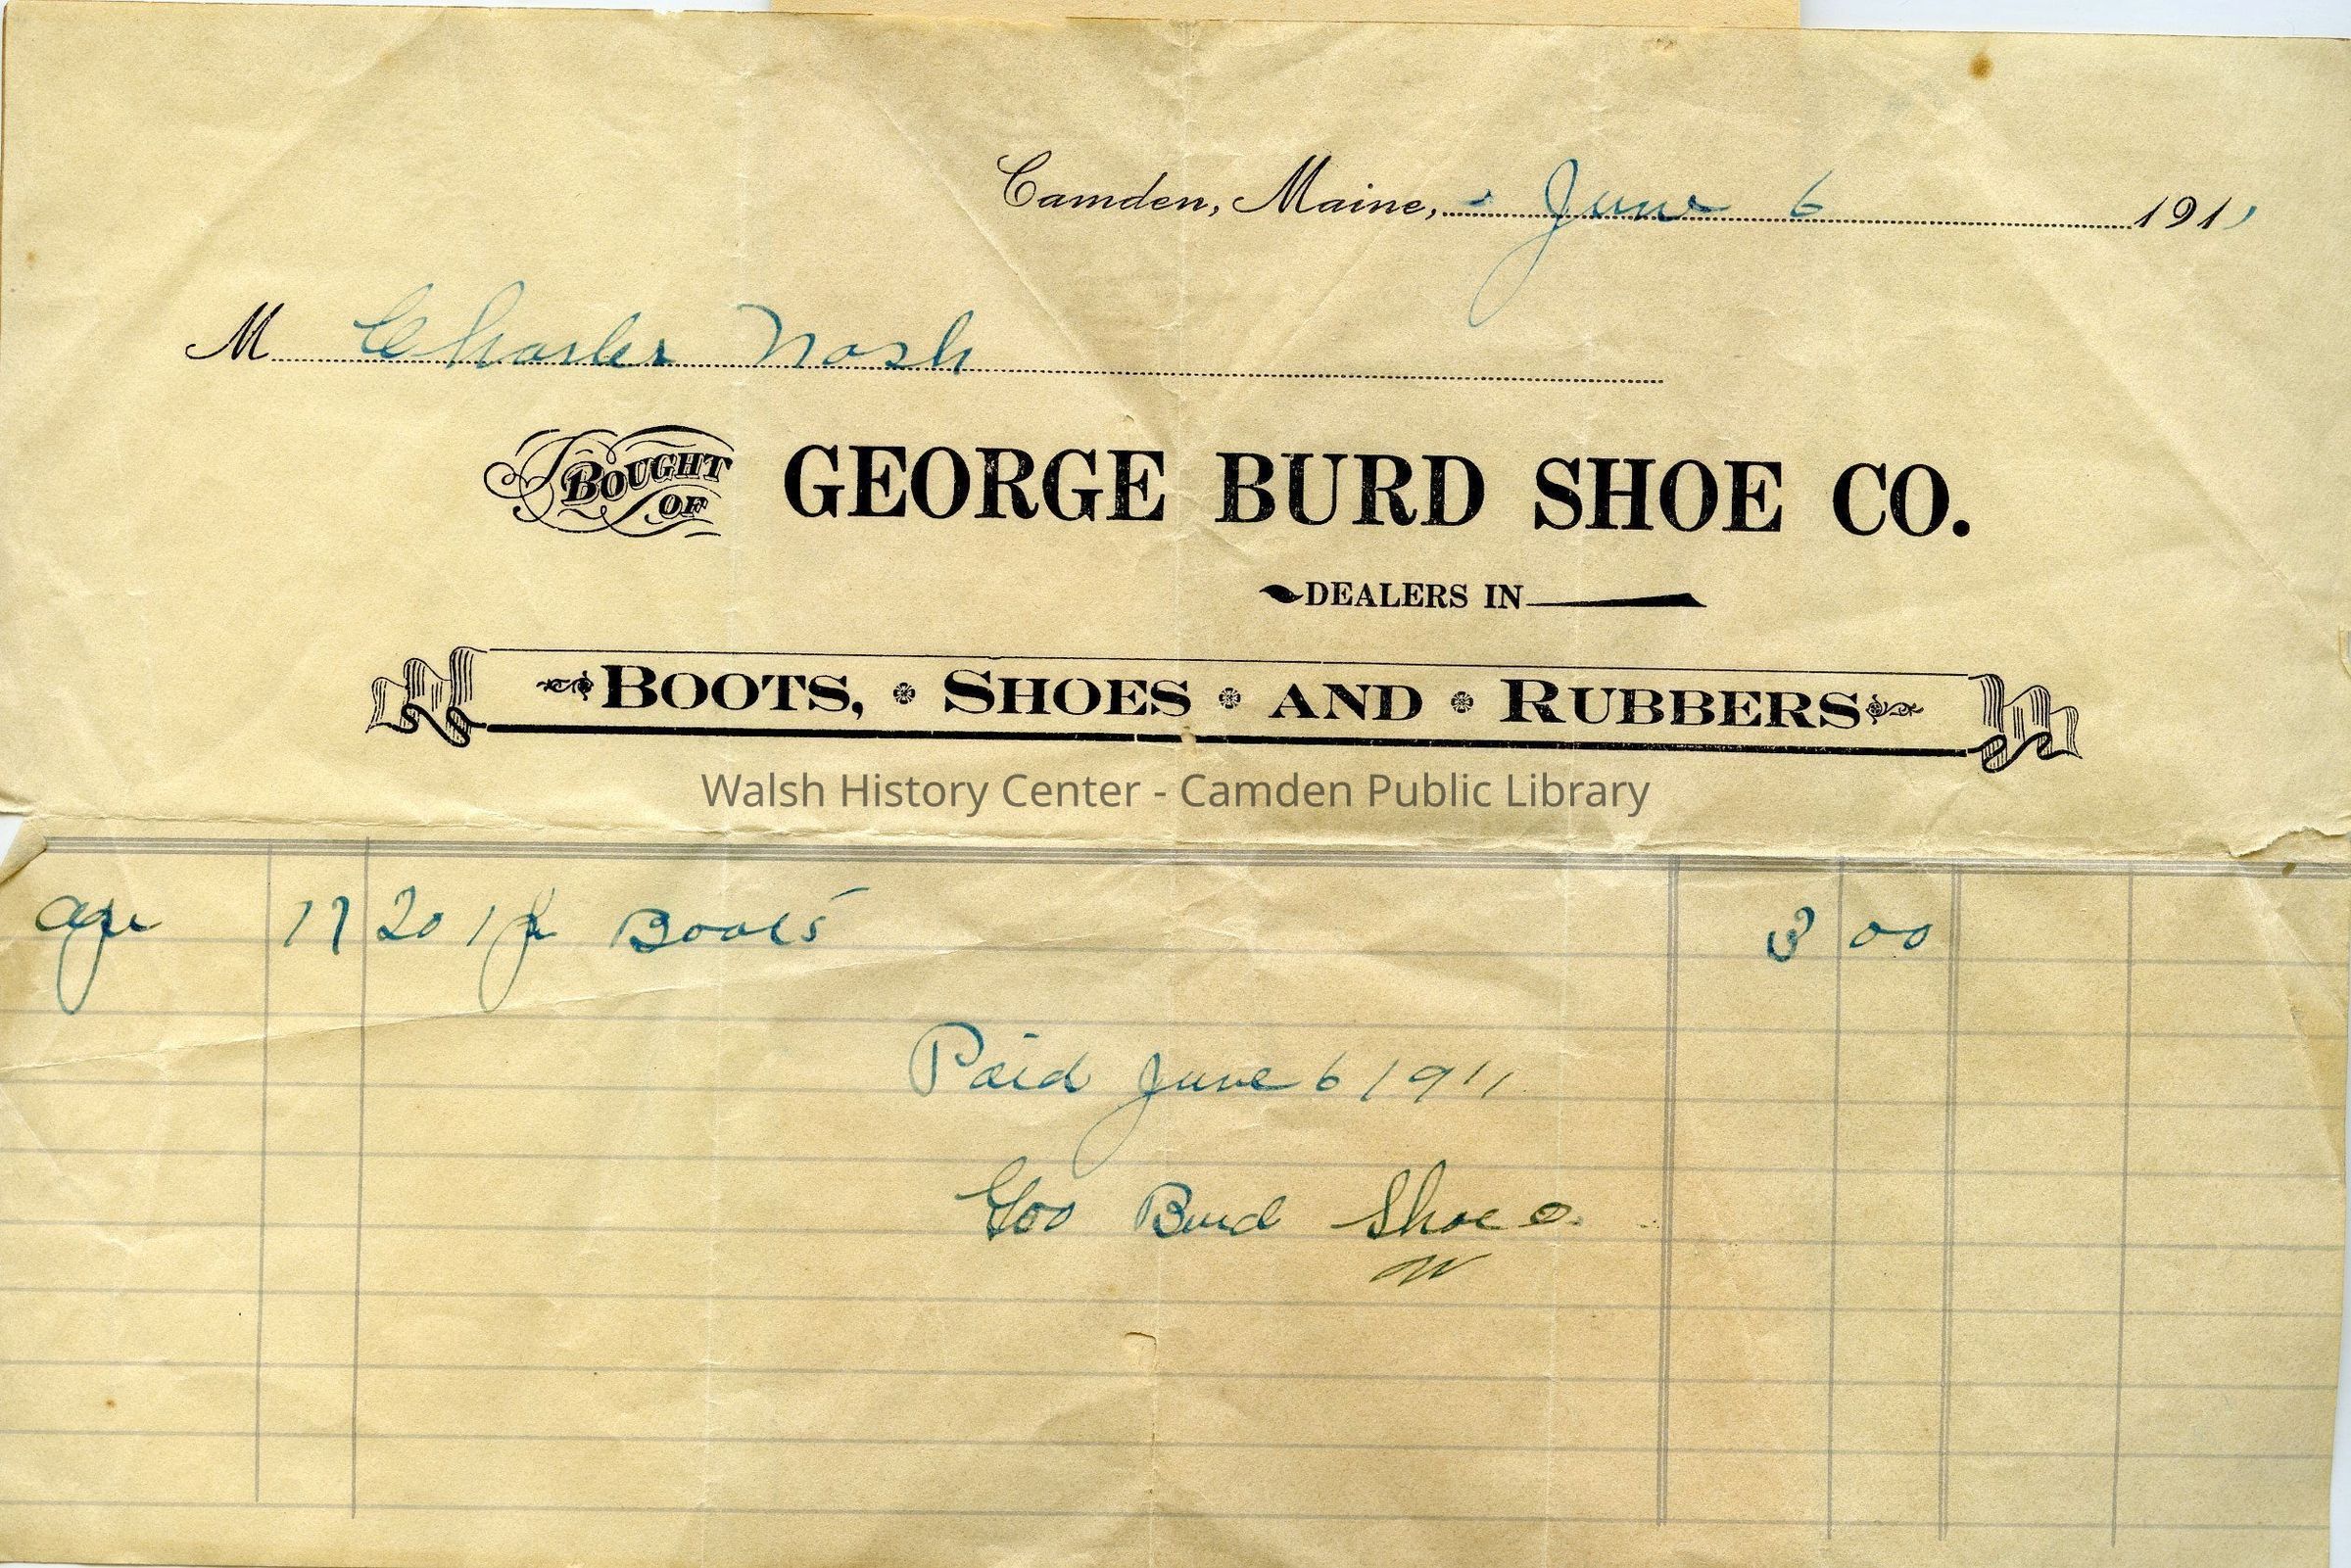 Camden, Maine, June 6 1911
M Charles Nash
BOUGHT OF GEORGE BURD SHOE CO.
DEALERS IN
BOOTS, SHOES AND RUBBERS
Walsh History Center - Camden Public Library
17 20 1 Boots 3 00
Paid June 6 1911
Geo Burd Shoe